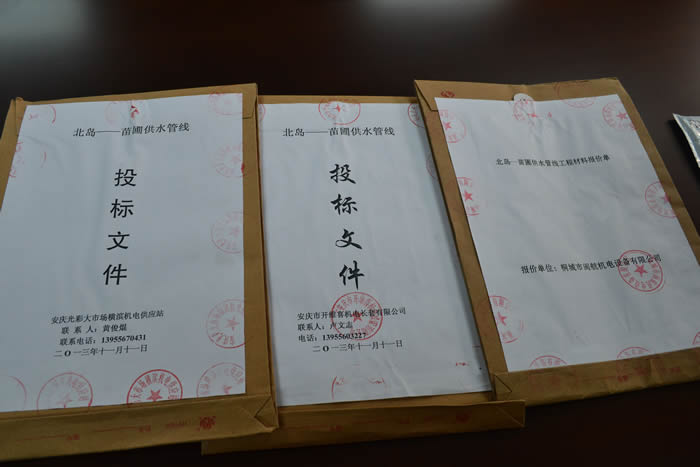 北岛——苗圃供水管线
投
标
文
件
安庆光彩大市场横滨机电供应站
联 系 人：黄俊焜
联系电话：13955670431
二〇一三年十一月十一日
北岛——苗圃供水管线
投
标
文
件
联系人：卢文志
电话：13955603227
二〇一三年十一月十一日
北岛—苗圃供水管线工程材料报价单
报价单位：桐城市闽航机电设备有限公司